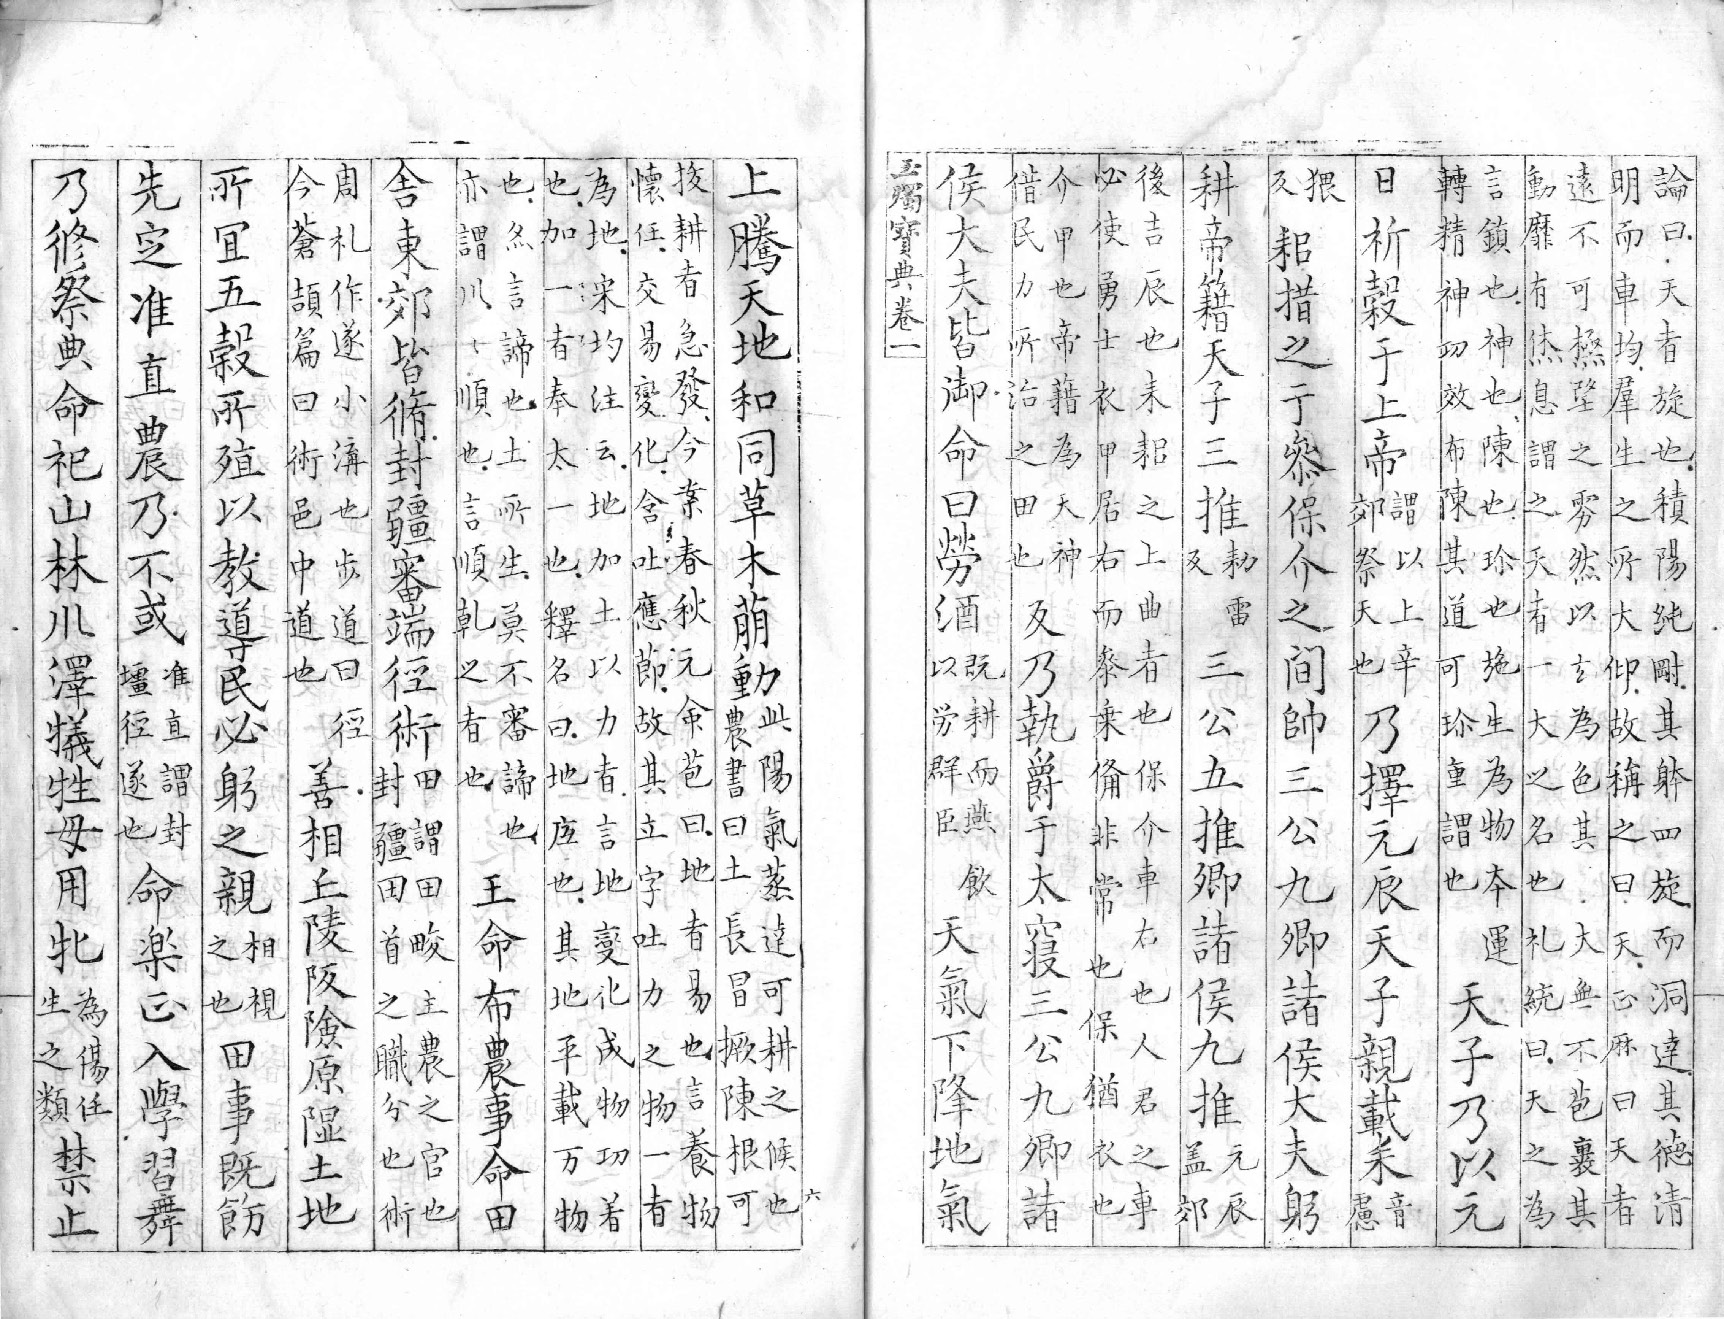 論曰天者旋也積陽純剛其躰四旋而洞達其德清
明而車均羣生之所大仰故稱之曰天正厤曰天者
遠不可極望之雰然以玄為色其大無不苞裹其
動靡有烋息謂之天有一大之名也礼統曰天之為
言鎮也神也陳也珎也施生為物本運
轉精神㓛效布陳其道可珎重謂也天子乃以元
日祈穀于上帝謂以上辛郊祭天也乃擇元辰天子親載耒音慮
猥及耜措之于叅保介之間帥三公九卿諸侯大夫躬
耕帝籍天子三推勑雷反三公五推卿諸侯九推元辰盖郊
後吉辰也耒耜之上曲者也保介車右也人君之事
必使勇士衣甲居右而叅乗俻非常也保猶衣也
介甲也帝藉為天神
借民力所治之田也反乃執爵于太寑三公九卿諸
侯大夫皆御命曰勞酒既耕而燕飲以労群臣天氣下降地氣
玉燭寶典卷一
六
上騰天地和同草木萠動此陽氣蒸達可耕之候也農書曰土長冒橛陳根可
拔耕者急發今案春秋元命苞曰地者易也言養物
懷任交易變化含吐應節故其立字吐力之物一者
為地宋均注云地加土以力者言地變化成物功着
也加一者奉太一也釋名曰地㡳也其地平載万物
也忩言諦也土所生莫不審諦也
亦謂川〻順也言順乹之者也王命布農事命田
舎東郊皆脩封疆審端径術田謂田畯主農之官也封疆田首之職分也術
周礼作遂小溝也步道曰徑
今蒼頡篇曰術邑中道也善相丘陵阪險原隰土地
所冝五穀所殖以教導民必躬之親相視之也田事既飭
先㝎准直農乃不或准直謂封壃徑遂也命楽正入學習舞
乃修祭典命祀山林川澤犠牲毋用牝為傷任生之類禁止